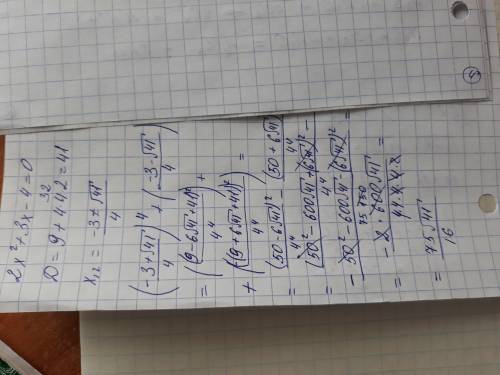 2x² + 3x - 4 = 0
D = 9 + 4·4·2 = 41
32
x₁,₂ = (-3 ± √41)/4
((-3 + √41)/4)⁴ + ((-3 - √41)/4)⁴
= (9 - 6√41 + 41)²/4⁴ +
+ (9 + 6√41 + 41)²/4⁴ =
= (50 - 6√41)²/4⁴ - (50 + 6√41)²/4⁴
= (50² - 600√41 + (6√41)²)/4⁴ -
- (50² - 600√41 - (6√41)²)/4⁴ =
75 150
= - 2·600√41/(4·4·4·4) =
= 75√41/16